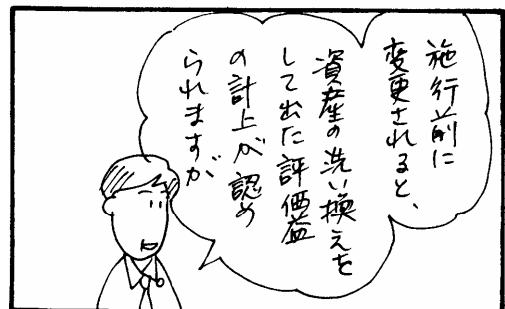 施行前に
変更されると、
資産の洗い換えを
して出た評価益
の計上が認め
られますが